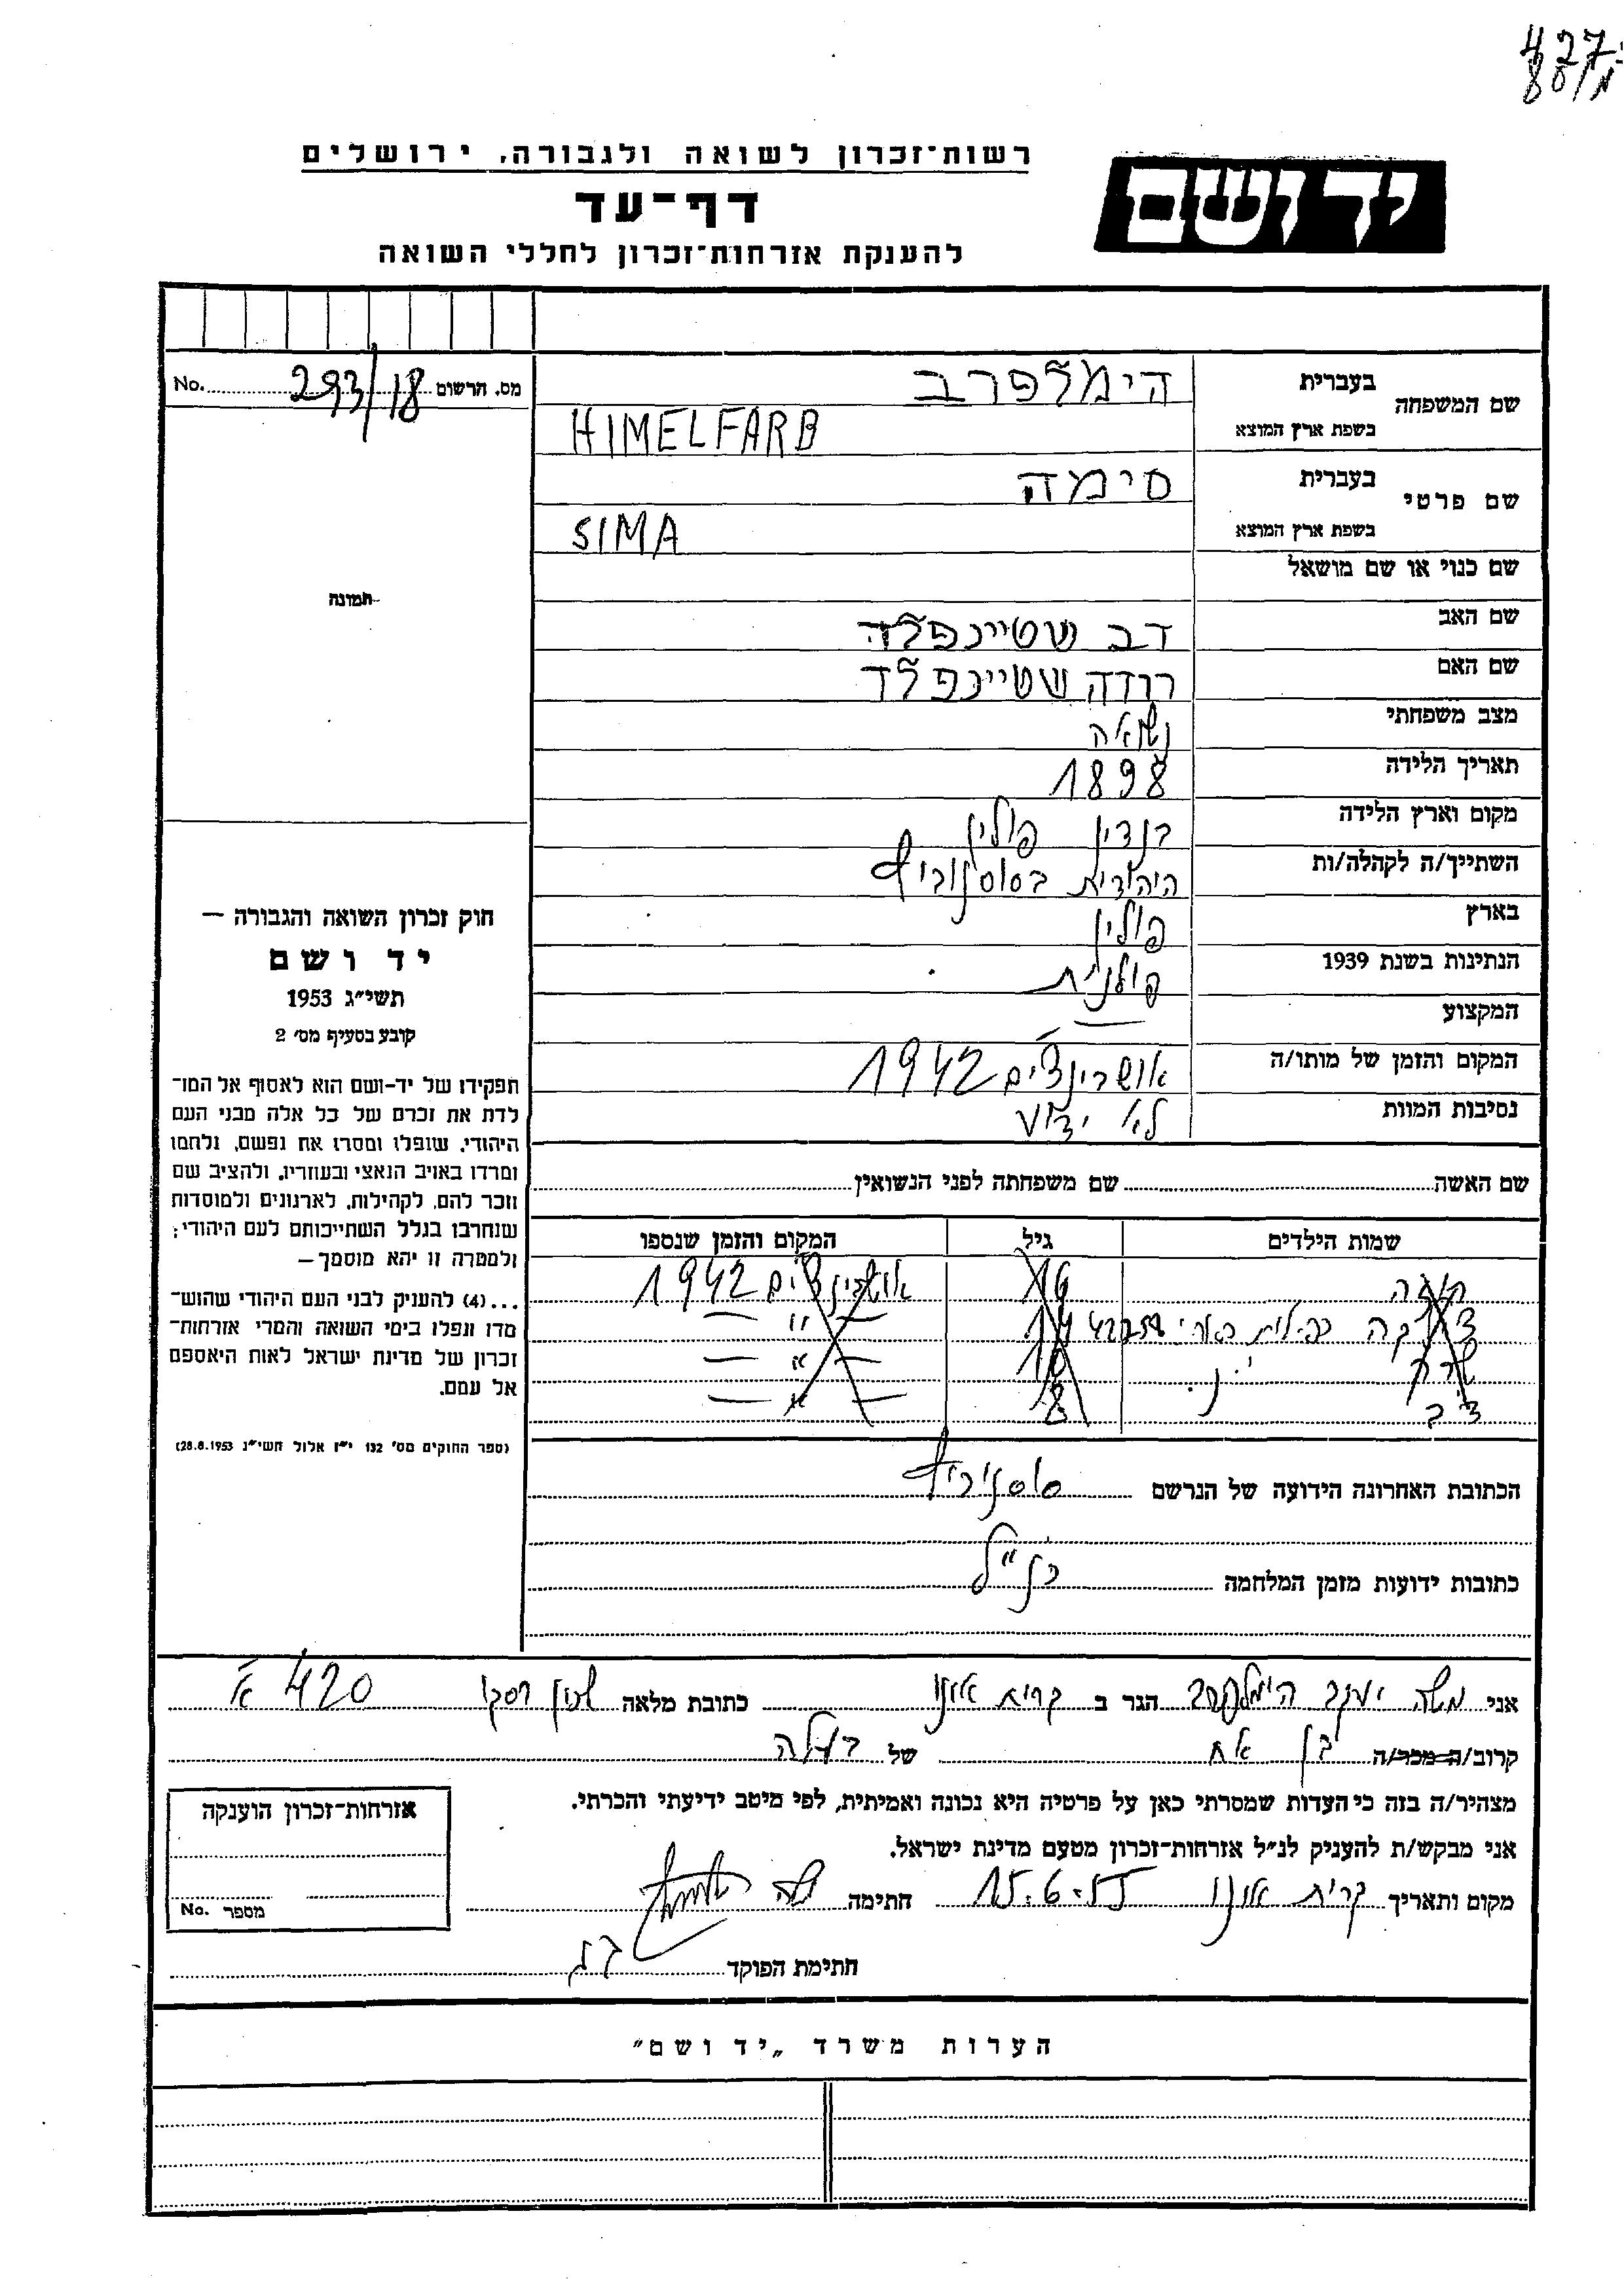 427
רשות־זכרון לשואה ולגבורה, ירושלים
יד ושם
דף־עד
להענקת אזרחות־זכרון לחללי השואה
מס. הרשום 293/18 No.
שם המשפחה בעברית הימלפרב
בשפת ארץ המוצא HIMELFARB
שם פרטי בעברית סימה
בשפת ארץ המוצא SIMA
שם כנוי או שם מושאל
תמונה
שם האב דב שטיינפלד
שם האם שטיינפלד
מצב משפחתי נשואה
תאריך הלידה 1898
מקום וארץ הלידה בנדין פולין
השתייך/ה לקהלה/ות היהודית בסוסנוביץ
בארץ פולין
הנתינות בשנת 1939 פולנית
המקצוע —
המקום והזמן של מותו/ה אושבינצ'ים 1942
נסיבות המוות לא ידוע
שם האשה שם משפחתה לפני הנשואין
שמות הילדים גיל המקום והזמן שנספו
16 אושבינצ'ים 1942
14 — " —
שרה 10 — " —
8 — " —
הכתובת האחרונה הידועה של הנרשם סוסנוביץ
כתובות ידועות מזמן המלחמה כנ"ל
חוק זכרון השואה והגבורה —
יד ושם
תשי״ג 1953
קובע בסעיף מס׳ 2
תפקידו של יד־ושם הוא לאסוף אל המו־
לדת את זכרם של כל אלה מבני העם
היהודי, שנפלו ומסרו את נפשם, נלחמו
ומרדו באויב הנאצי ובעוזריו, ולהציב שם
וזכר להם, לקהילות, לארגונים ולמוסדות
שנחרבו בגלל השתייכותם לעם היהודי;
ולמטרה זו יהא מוסמך—
...(4) להעניק לבני העם היהודי שהוש־
מדו ונפלו בימי השואה והמרי אזרחות־
זכרון של מדינת ישראל לאות היאספם
אל עמם.
(ספר החוקים מס׳ 132 י״ז אלול תשי״ג 28.8.1953)
אני משה יעקב הימלפרב הגר ב קרית אונו כתובת מלאה שכון רסקו 420 א'
קרוב/ה מכר/ה בן אח של בעלה
מצהיר/ה בזה כי העדות שמסרתי כאן על פרטיה היא נכונה ואמיתית, לפי מיטב ידיעתי והכרתי.
אני מבקש/ת להעניק לנ״ל אזרחות־זכרון מטעם מדינת ישראל.
מקום ותאריך קרית אונו 15.6.55 חתימה משה
חתימת הפוקד
אזרחות־זכרון הוענקה
מספר No.
הערות משרד „יד ושם״